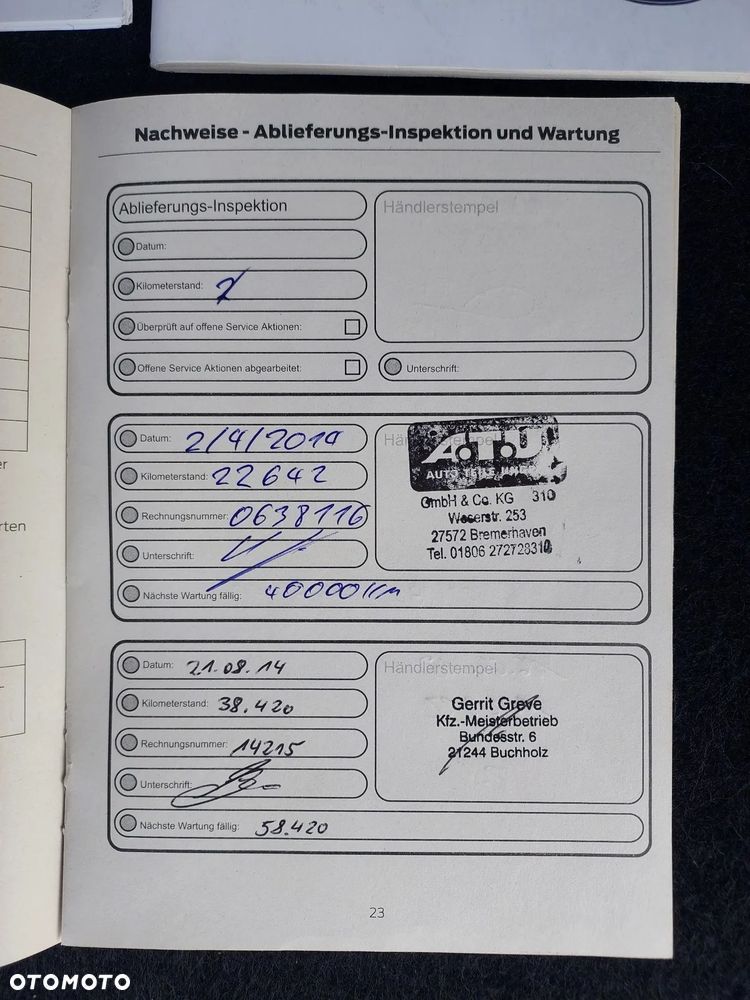 Nachweise - Ablieferungs-Inspektion und Wartung
Ablieferungs-Inspektion
Händlerstempel
Datum:
Kilometerstand:
Überprüft auf offene Service Aktionen:
Offene Service Aktionen abgearbeitet:
Unterschrift:
Datum: 2/4/2014
A.T.U
AUTO TEILE UNGER
Kilometerstand: 22642
GmbH & Co. KG 310
Weserstr. 253
Rechnungsnummer: 0638116
27572 Bremerhaven
Tel. 01806 272728310
Unterschrift:
Nächste Wartung fällig: 40000 km
Datum: 21.08.14
Händlerstempel
Kilometerstand: 38.420
Gerrit Greve
Kfz.-Meisterbetrieb
Bundesstr. 6
21244 Buchholz
Rechnungsnummer: 14215
Unterschrift:
Nächste Wartung fällig: 58.420
23
rten
OTOMOTO